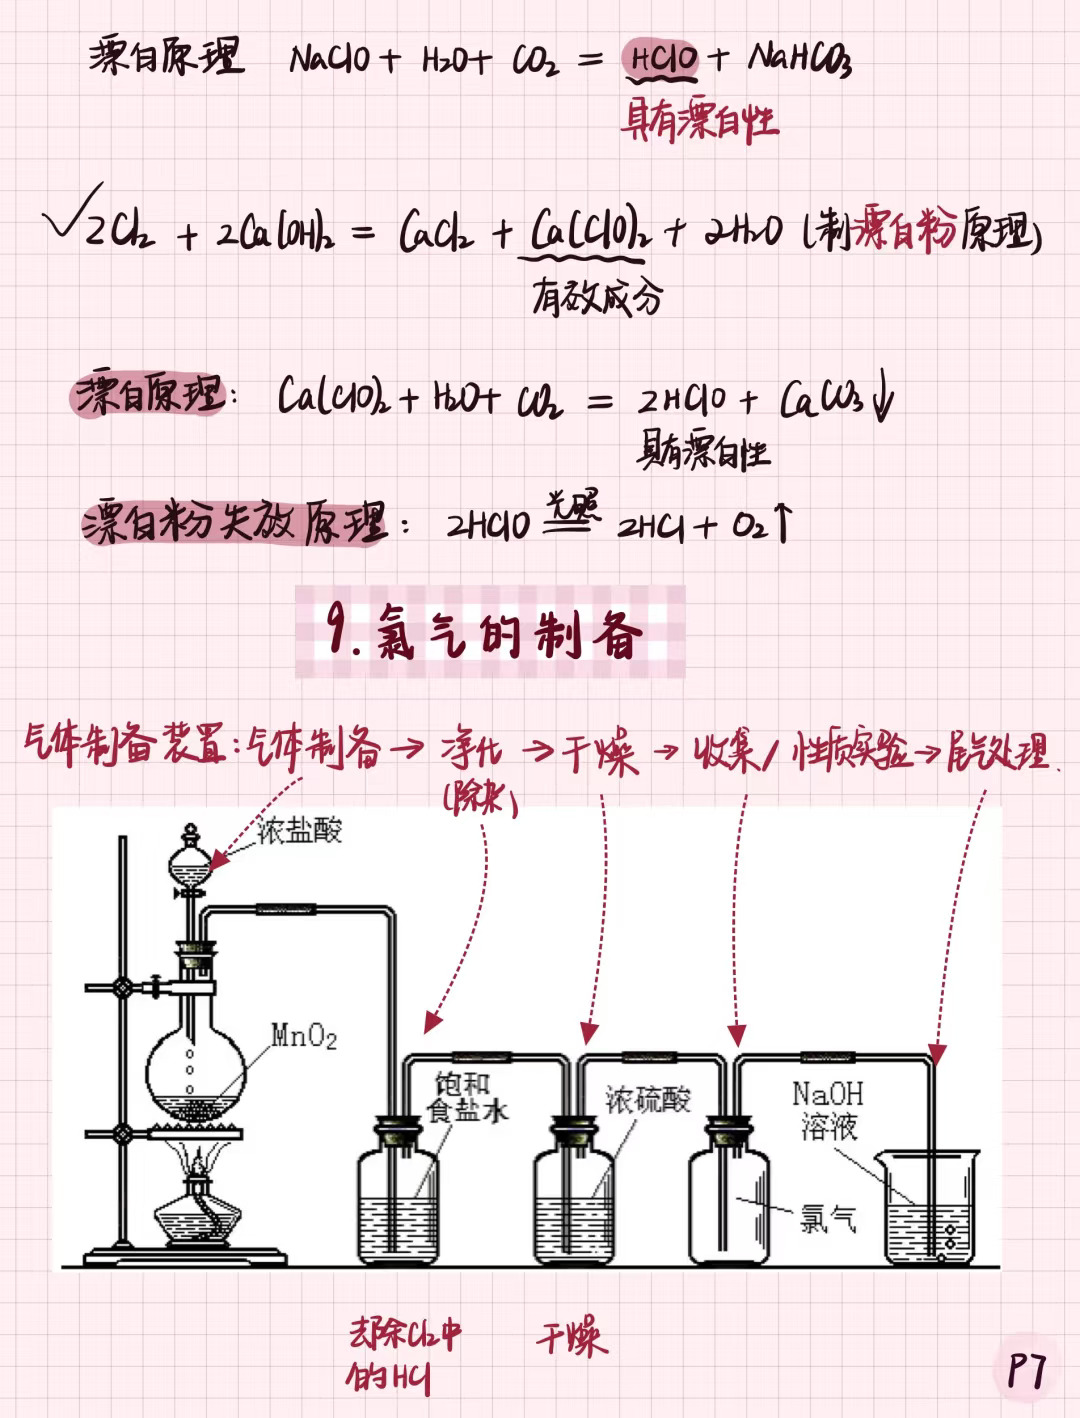 漂白原理 NaClO + H₂O + CO₂ = HClO + NaHCO₃
具有漂白性
√2Cl₂ + 2Ca(OH)₂ = CaCl₂ + Ca(ClO)₂ + 2H₂O (制漂白粉原理)
有效成分
漂白原理: Ca(ClO)₂ + H₂O + CO₂ = 2HClO + CaCO₃↓
具有漂白性
漂白粉失放原理: 2HClO 光照 2HCl + O₂↑
9.氯气的制备
气体制备装置:气体制备→净化→干燥→收集/性质实验→尾气处理.
(除杂)
浓盐酸
MnO₂
饱和
食盐水
浓硫酸
NaOH
溶液
氯气
去除Cl₂中
的HCl
干燥
P7